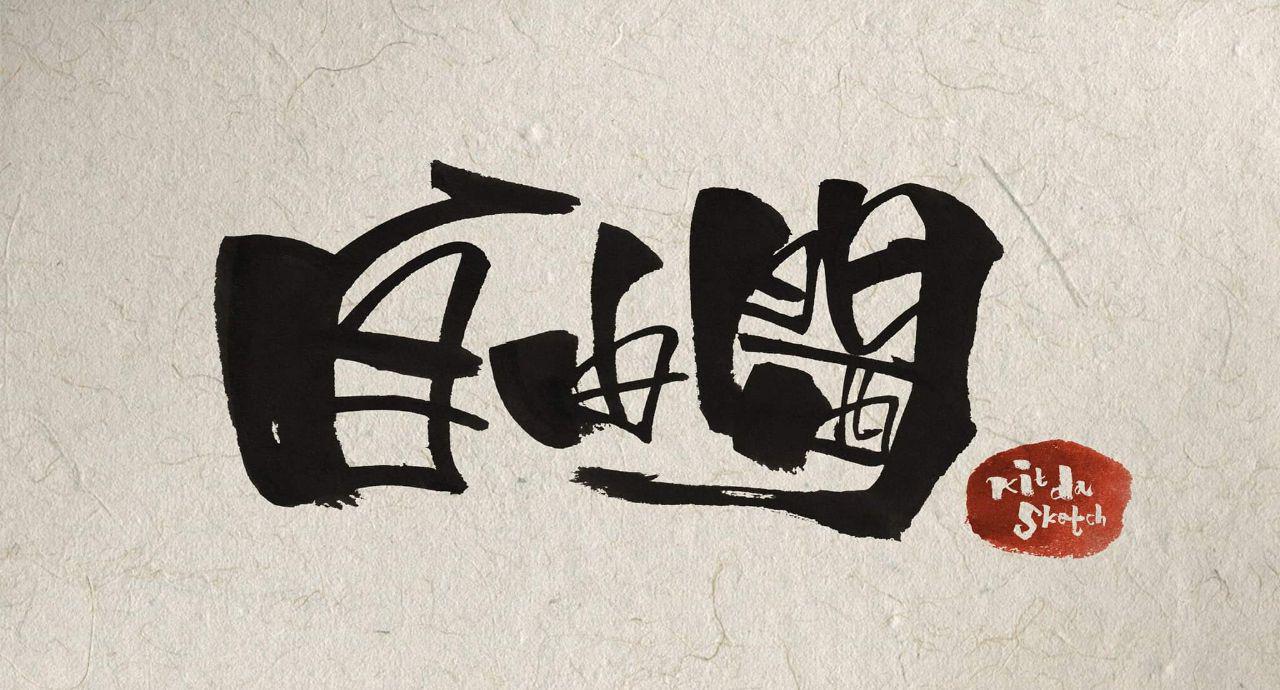 自由
Kitda
Sketch